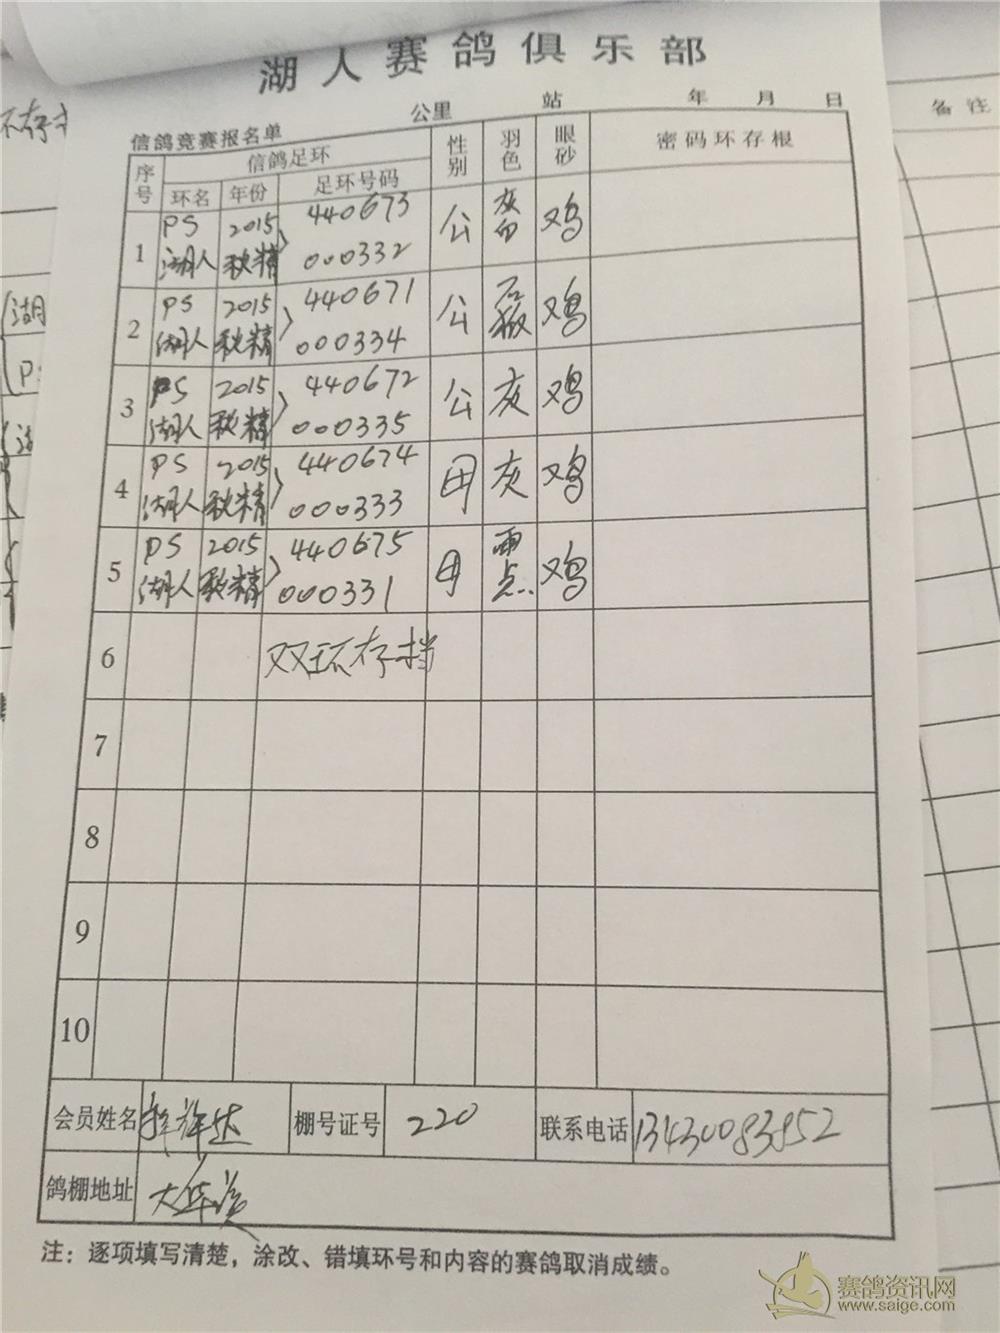 湖人赛鸽俱乐部
公里 站 年 月 日
信鸽竞赛报名单
序号 信鸽足环 性别 羽色 眼砂 密码环存根
环名 年份 足环号码
1 PS 2015 440673 公 鸡
湖人 秋精 000332
2 PS 2015 440671 公 石板 鸡
湖人 秋精 000334
3 PS 2015 440672 公 灰 鸡
湖人 秋精 000335
4 PS 2015 440674 母 灰 鸡
湖人 秋精 000333
5 PS 2015 440675 母 雨点 鸡
湖人 秋精 000331
6 双环存档
7
8
9
10
会员姓名 棚号证号 220 联系电话 13430083852
鸽棚地址 大
注：逐项填写清楚，涂改、错填环号和内容的赛鸽取消成绩。
备注
环存
湖
赛鸽资讯网
www.saige.com